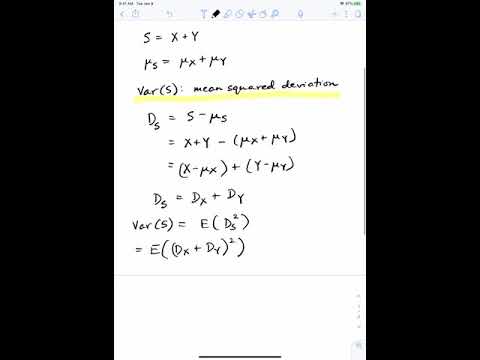 9:41 AM Tue Jan 9
S = X + Y
μ_S = μ_X + μ_Y
Var(S): mean squared deviation
D_S = S - μ_S
= X + Y - (μ_X + μ_Y)
= (X - μ_X) + (Y - μ_Y)
D_S = D_X + D_Y
Var(S) = E(D_S^2)
= E((D_X + D_Y)^2)